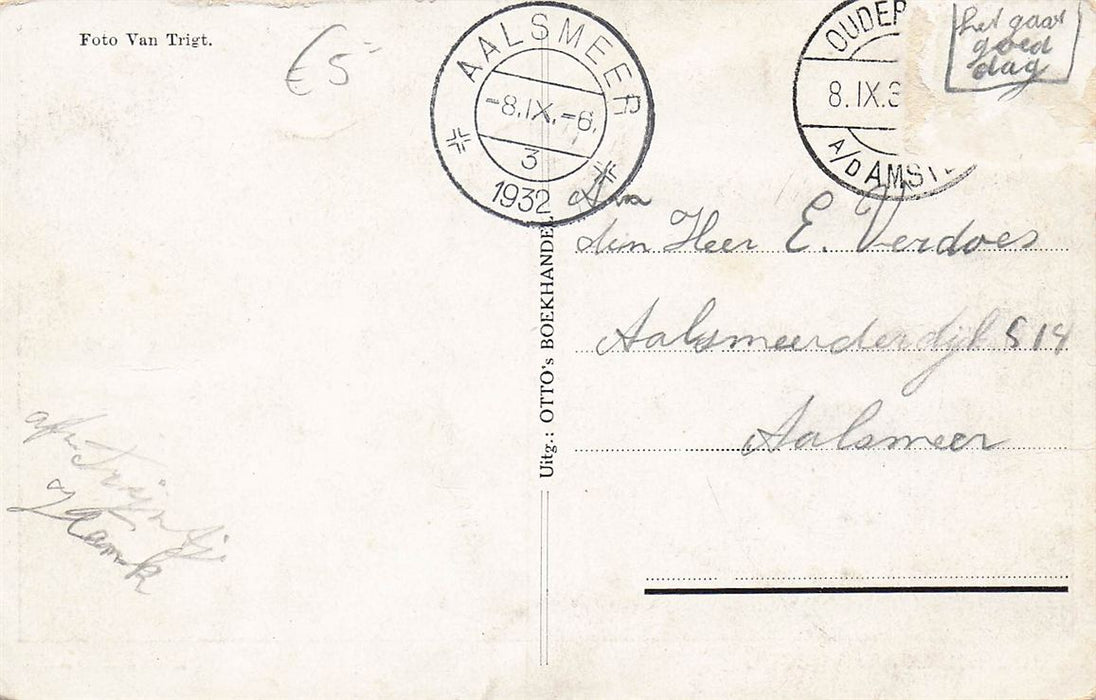 Foto Van Trigt.
€ 5
AALSMEER
-8.IX.-6.
3
1932
OUDER
8.IX.3
A/D AMST
het gaat
goed
dag
Aan
den Heer E. Verdoes
Aalsmeerderdijk 514
Aalsmeer
Uitg.: OTTO's BOEKHANDEL
Trijntje